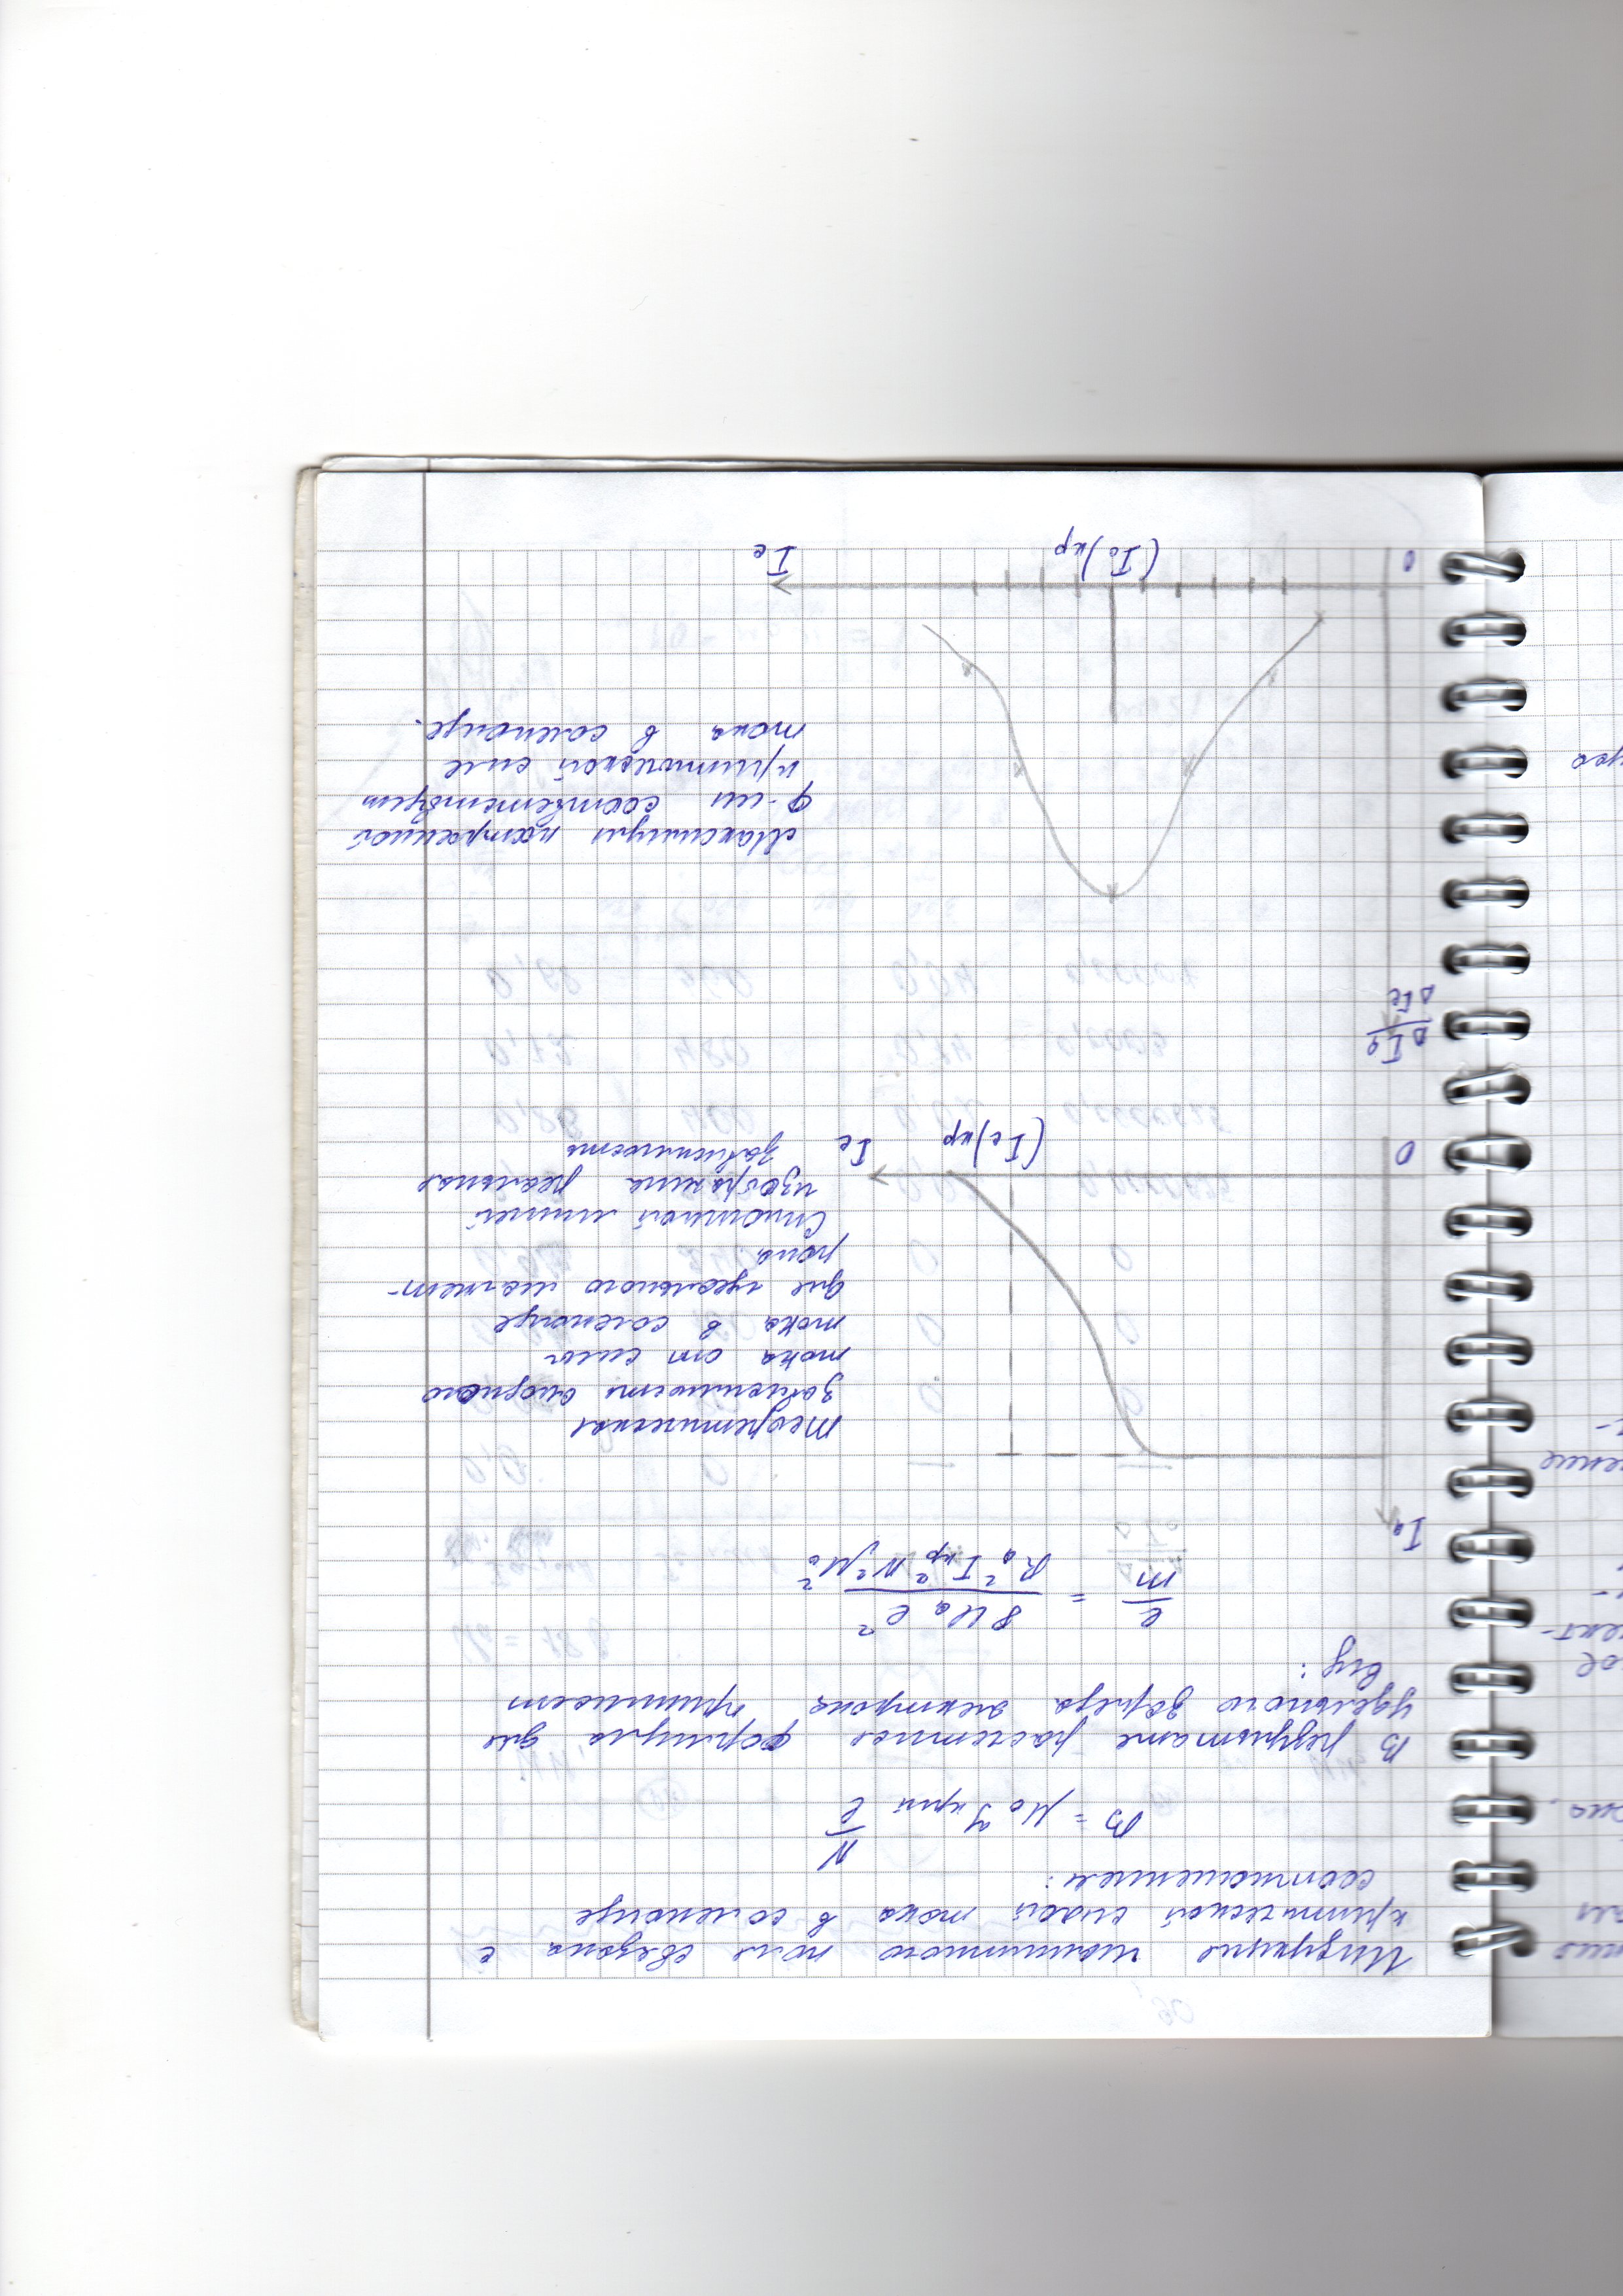 Индукция магнитного поля связана с
критической силой тока в соленоиде
соотношением:
B = μ₀ I крит N/l
В результате расчетная формула для
удельного заряда электрона принимает
вид:
e/m = 8 Uа l² / Rа² Iкр² N² μ₀²
Iа
Теоретическая
зависимость анодного
тока от силы
тока в соленоиде
для идеального магнет-
рона.
Сплошной линией
изображена реальная
зависимость
0 (Iс)кр Iс
ΔIа/ΔIс
Максимум построенной
ф-ии соответствует
критической силе
тока в соленоиде.
0 (Iс)кр Iс